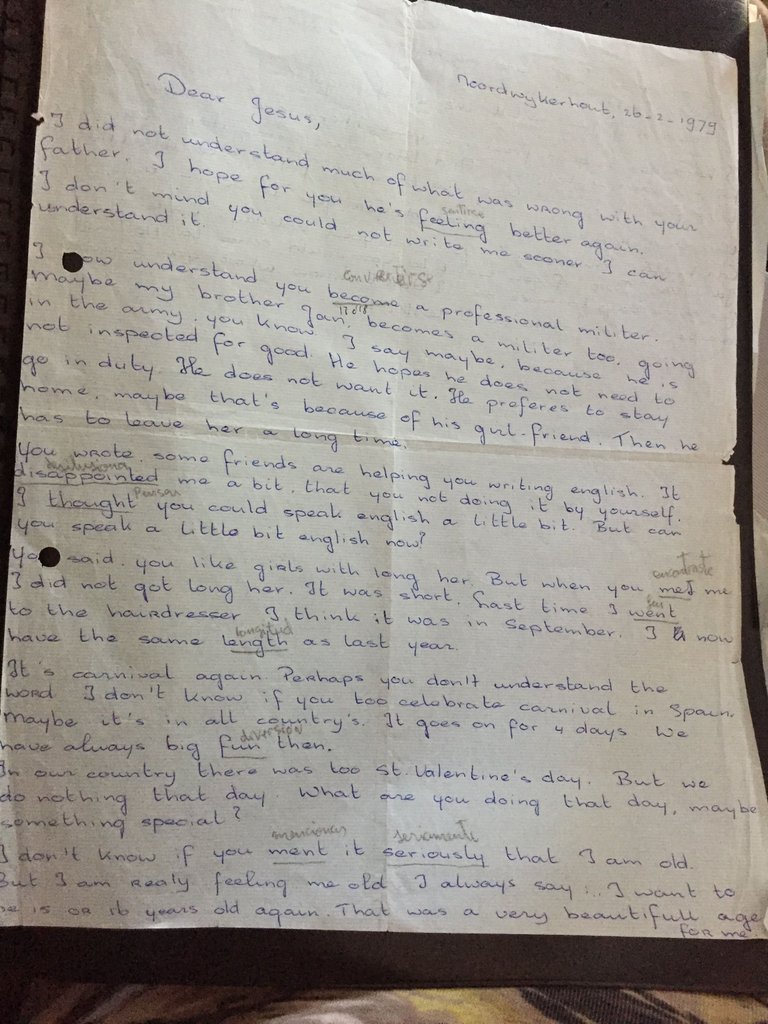 Noordwijkerhout, 26-2-1979
Dear Jesus,
I did not understand much of what was wrong with your
father. I hope for you he's feeling better again.
sentirse
I don't mind you could not write me sooner. I can
understand it.
I now understand you become a professional militer.
convertirse
Maybe my brother Jan, becomes a militer too, going
in the army, you know. I say maybe, because he is
not inspected for good. He hopes he does not need to
go in duty. He does not want it. He preferes to stay
home, maybe that's because of his girl-friend. Then he
has to leave her a long time.
You wrote, some friends are helping you writing english. It
desilusiona
disappointed me a bit, that you not doing it by yourself.
pensar
I thought you could speak english a little bit. But can
you speak a little bit english now?
You said, you like girls with long her. But when you met me
encontraste
I did not got long her. It was short. Last time I went
fui
to the hairdresser I think it was in September. I now
longitud
have the same length as last year.
It's carnival again. Perhaps you don't understand the
word. I don't know if you too celebrate carnival in Spain.
Maybe it's in all country's. It goes on for 4 days. We
have always big fun then.
diversion
In our country there was too St. Valentine's day. But we
do nothing that day. What are you doing that day, maybe
something special?
mencionar seriamente
I don't know if you ment it seriously that I am old.
But I am realy feeling me old. I always say: I want to
be 15 or 16 years old again. That was a very beautifull age
for me.